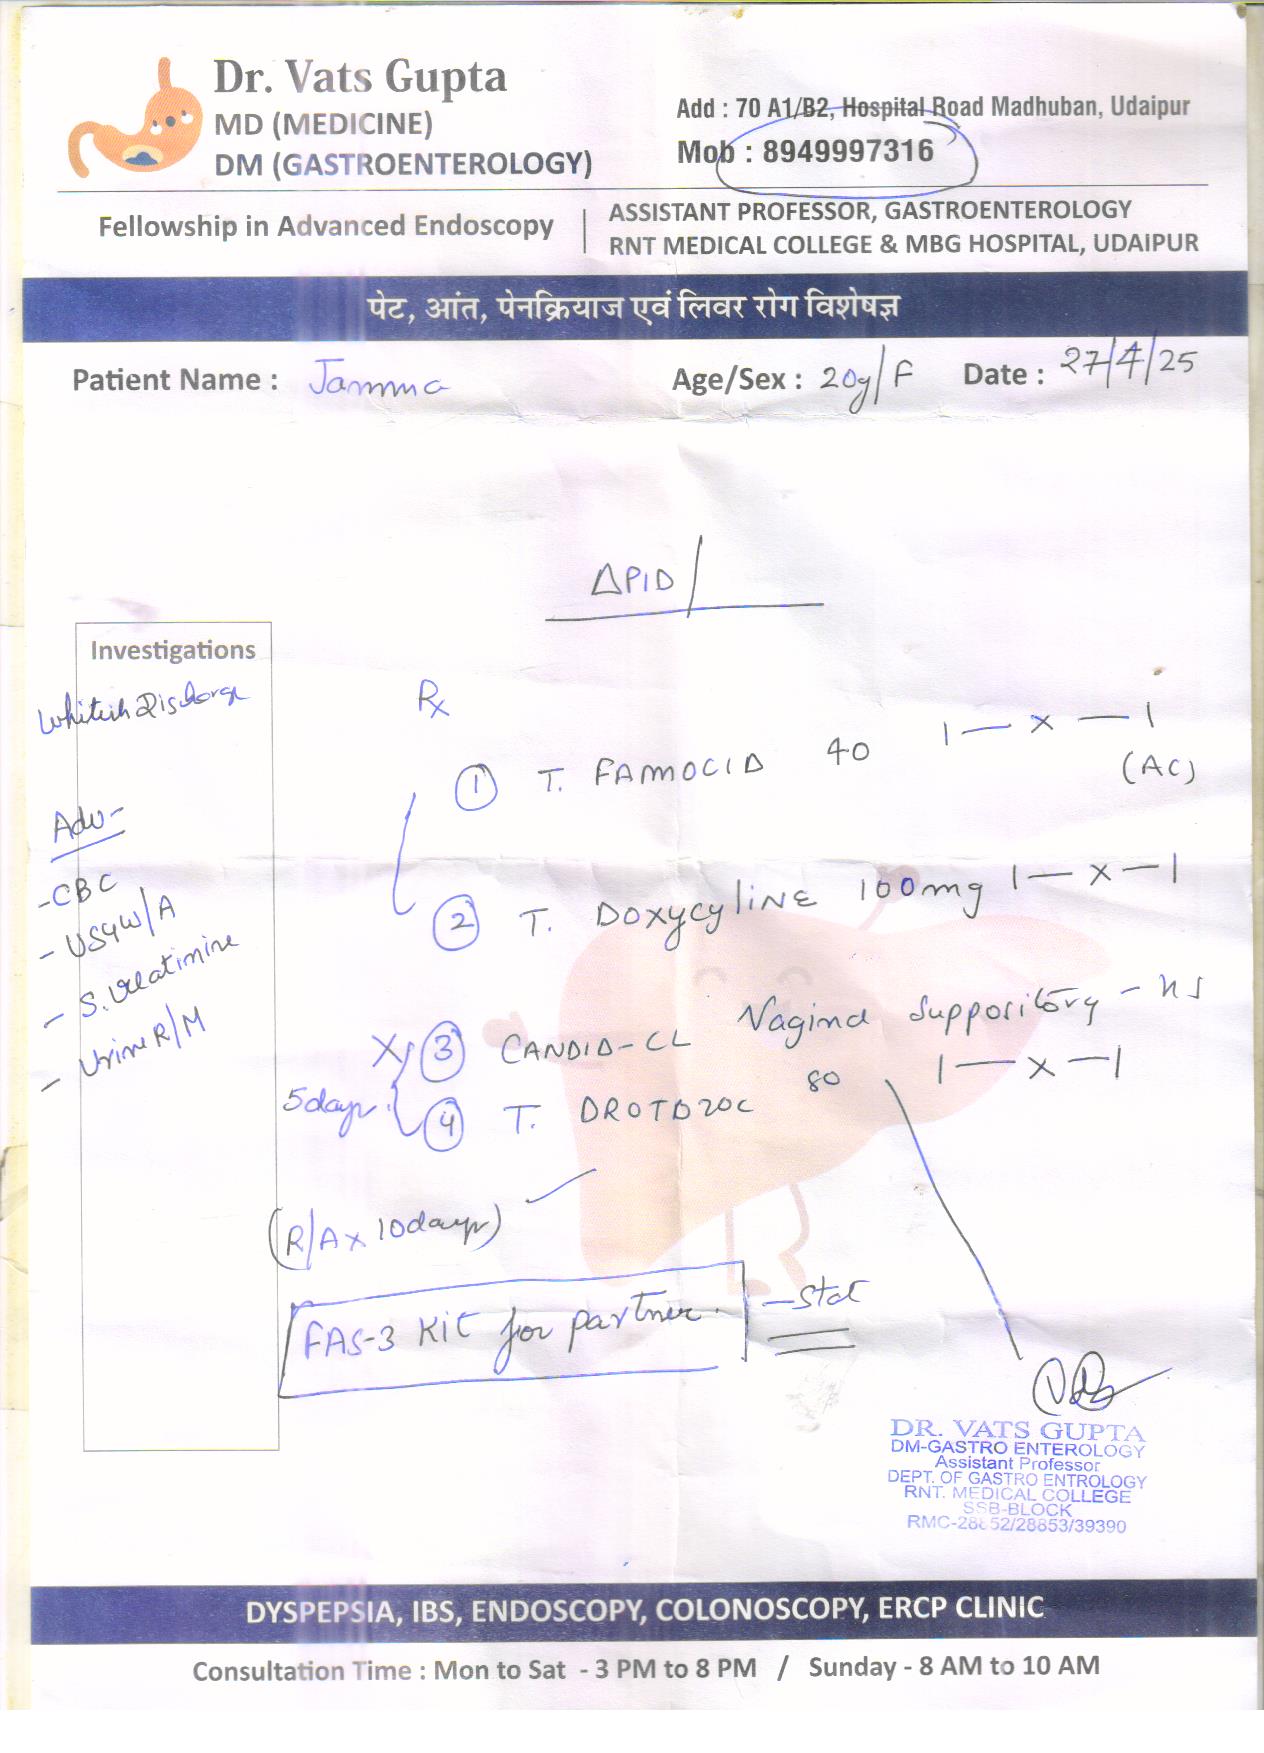 Dr. Vats Gupta
MD (MEDICINE)
DM (GASTROENTEROLOGY)
Add : 70 A1/B2, Hospital Road Madhuban, Udaipur
Mob : 8949997316
Fellowship in Advanced Endoscopy
ASSISTANT PROFESSOR, GASTROENTEROLOGY
RNT MEDICAL COLLEGE & MBG HOSPITAL, UDAIPUR
पेट, आंत, पेनक्रियाज एवं लिवर रोग विशेषज्ञ
Patient Name : Jamma Age/Sex : 20y/F Date : 27/4/25
Δ PID
Investigations
Whitish Discharge
Adv-
- CBC
- USG W/A
- S. Creatinine
- Urine R/M
Rx
1 T. FAMOCID 40 1 — x — 1
(AC)
2 T. DOXYCYLINE 100mg 1 — x — 1
X 3 CANDID-CL Vaginal Suppository - HS
5 days 4 T. DROTDZOC 80 1 — x — 1
(R/A x 10 days)
FAS-3 Kit for partner. — Stat
DR. VATS GUPTA
DM-GASTRO ENTEROLOGY
Assistant Professor
DEPT. OF GASTRO ENTROLOGY
RNT. MEDICAL COLLEGE
SSB-BLOCK
RMC-28852/28853/39390
DYSPEPSIA, IBS, ENDOSCOPY, COLONOSCOPY, ERCP CLINIC
Consultation Time : Mon to Sat - 3 PM to 8 PM / Sunday - 8 AM to 10 AM